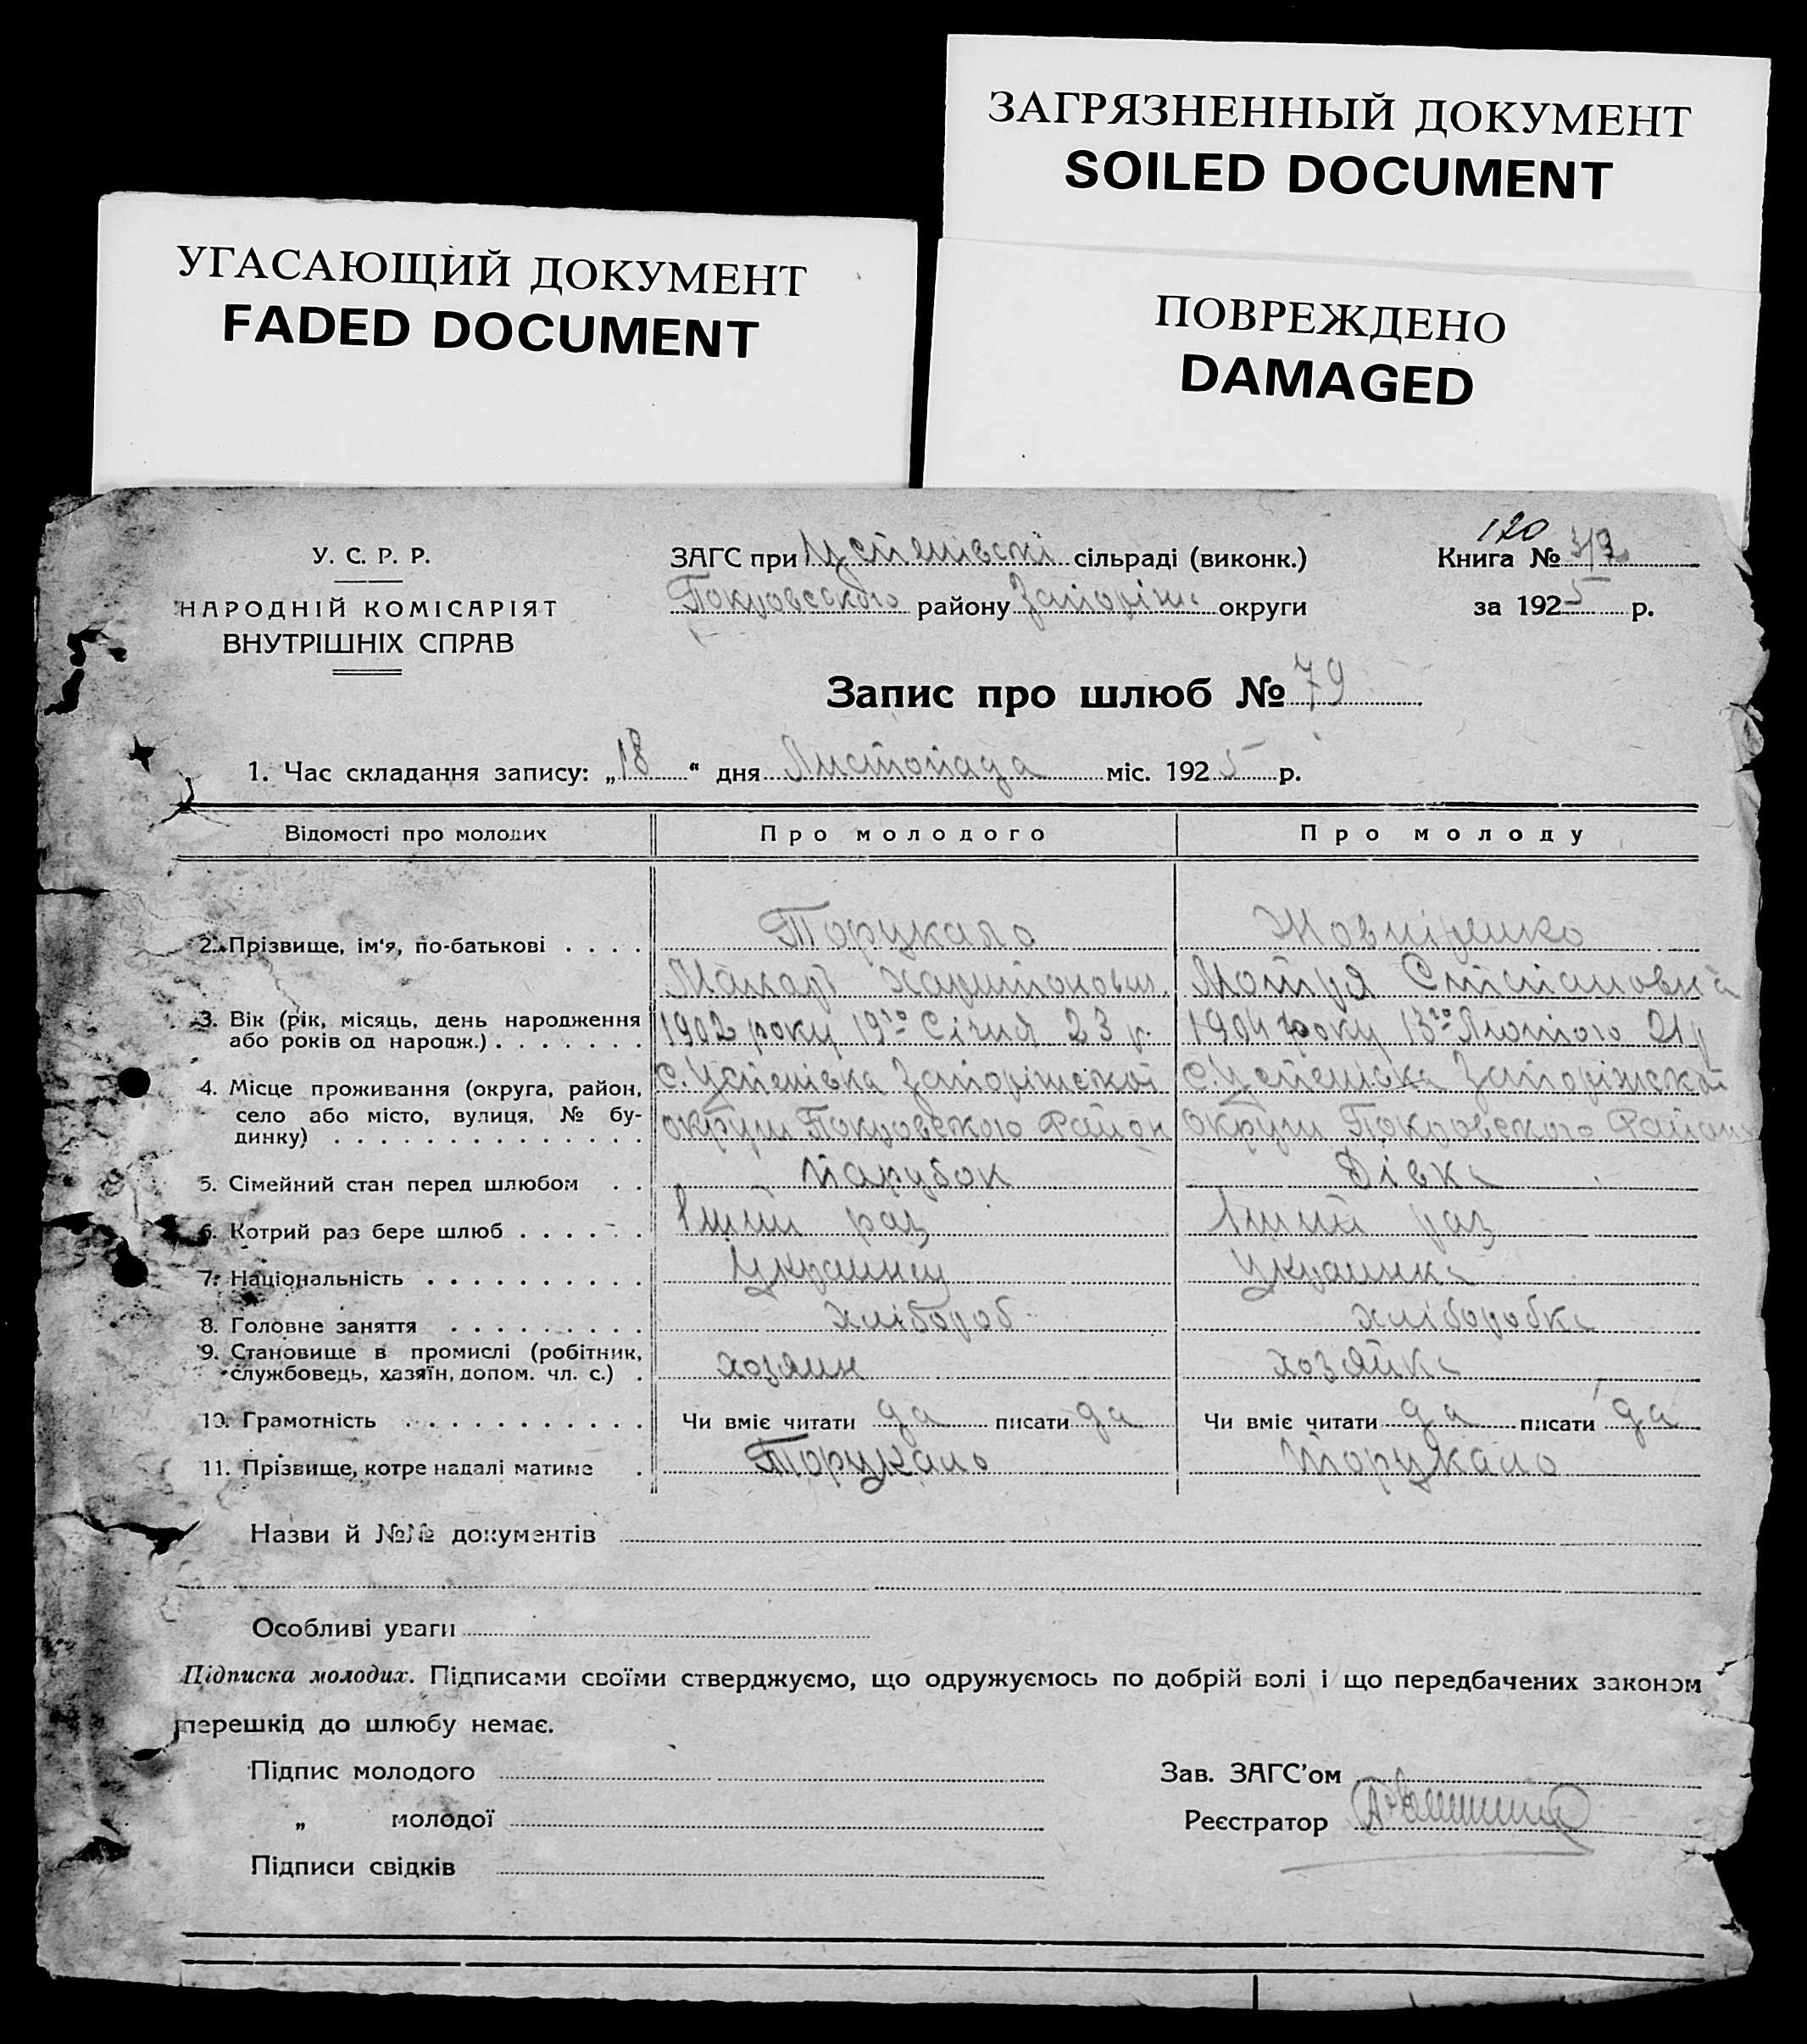 ЗАГРЯЗНЕННЫЙ ДОКУМЕНТ
SOILED DOCUMENT
УГАСАЮЩИЙ ДОКУМЕНТ
FADED DOCUMENT
ПОВРЕЖДЕНО
DAMAGED
120
У. С. Р. Р.
ЗАГС при Успенівскі сільраді (виконк.)
Книга №
НАРОДНІЙ КОМІСАРІЯТ
ВНУТРІШНІХ СПРАВ
Покровського району Запоріж округи
за 1925 р.
Запис про шлюб № 79
1. Час складання запису: „18“ дня Листопада міс. 1925 р.
Відомості про молодих Про молодого Про молоду
2. Прізвище, ім'я, по-батькові . . . . Торукало Жовніренко
Макар Харитонович Мотря Степановна
3. Вік (рік, місяць, день народження
або років од народж.) . . . . . . . 1902 року 19го Січня 23 р. 1904 року 13го Лютого 21 р
4. Місце проживання (округа, район,
село або місто, вулиця, № бу-
динку) . . . . . . . . . . . . . .
с. Успенівка Запоріжської с. Успенівка Запоріжської
округи Покровского Район округи Покровского Району
5. Сімейний стан перед шлюбом . . Парубок Дівка
6. Котрий раз бере шлюб . . . . . . 1ший раз 1ший раз
7. Національність . . . . . . . . . . Украинец Украинка
8. Головне заняття . . . . . . . . . хлібороб хліборобка
9. Становище в промислі (робітник,
службовець, хазяїн, допом. чл. с.) . хозяин хозяйка
10. Грамотність . . . . . . . . . . . Чи вміє читати да писати да Чи вміє читати да писати да
11. Прізвище, котре надалі матиме . Торукало Торукало
Назви й №№ документів
Особливі уваги
Підписка молодих. Підписами своїми стверджуємо, що одружуємось по добрій волі і що передбачених законом
перешкід до шлюбу немає.
Підпис молодого Зав. ЗАГС'ом
„ молодої Реєстратор
Підписи свідків